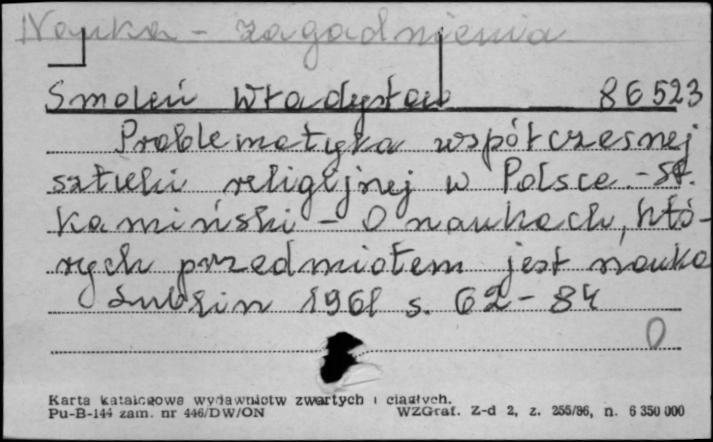 Nauka - zagadnienia
Smoleń Władysław 86523
Problematyka współczesnej
sztuki religijnej w Polsce. - St.
Kamiński - O naukach, któ-
rych przedmiotem jest nauka
Lublin 1961 s. 62-84
0
Karta katalogowa wydawnictw zwartych i ciągłych.
Pu-B-144 zam. nr 446/DW/ON WZGraf. Z-d 2, z. 255/86, n. 6 350 000